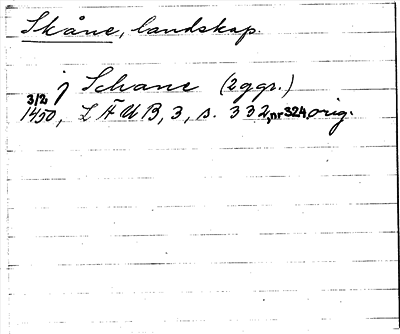 Skåne, landskap.
j Schane (2 ggr.)
3/2
1450, LÄUB, 3, s. 332, nr 324 orig.